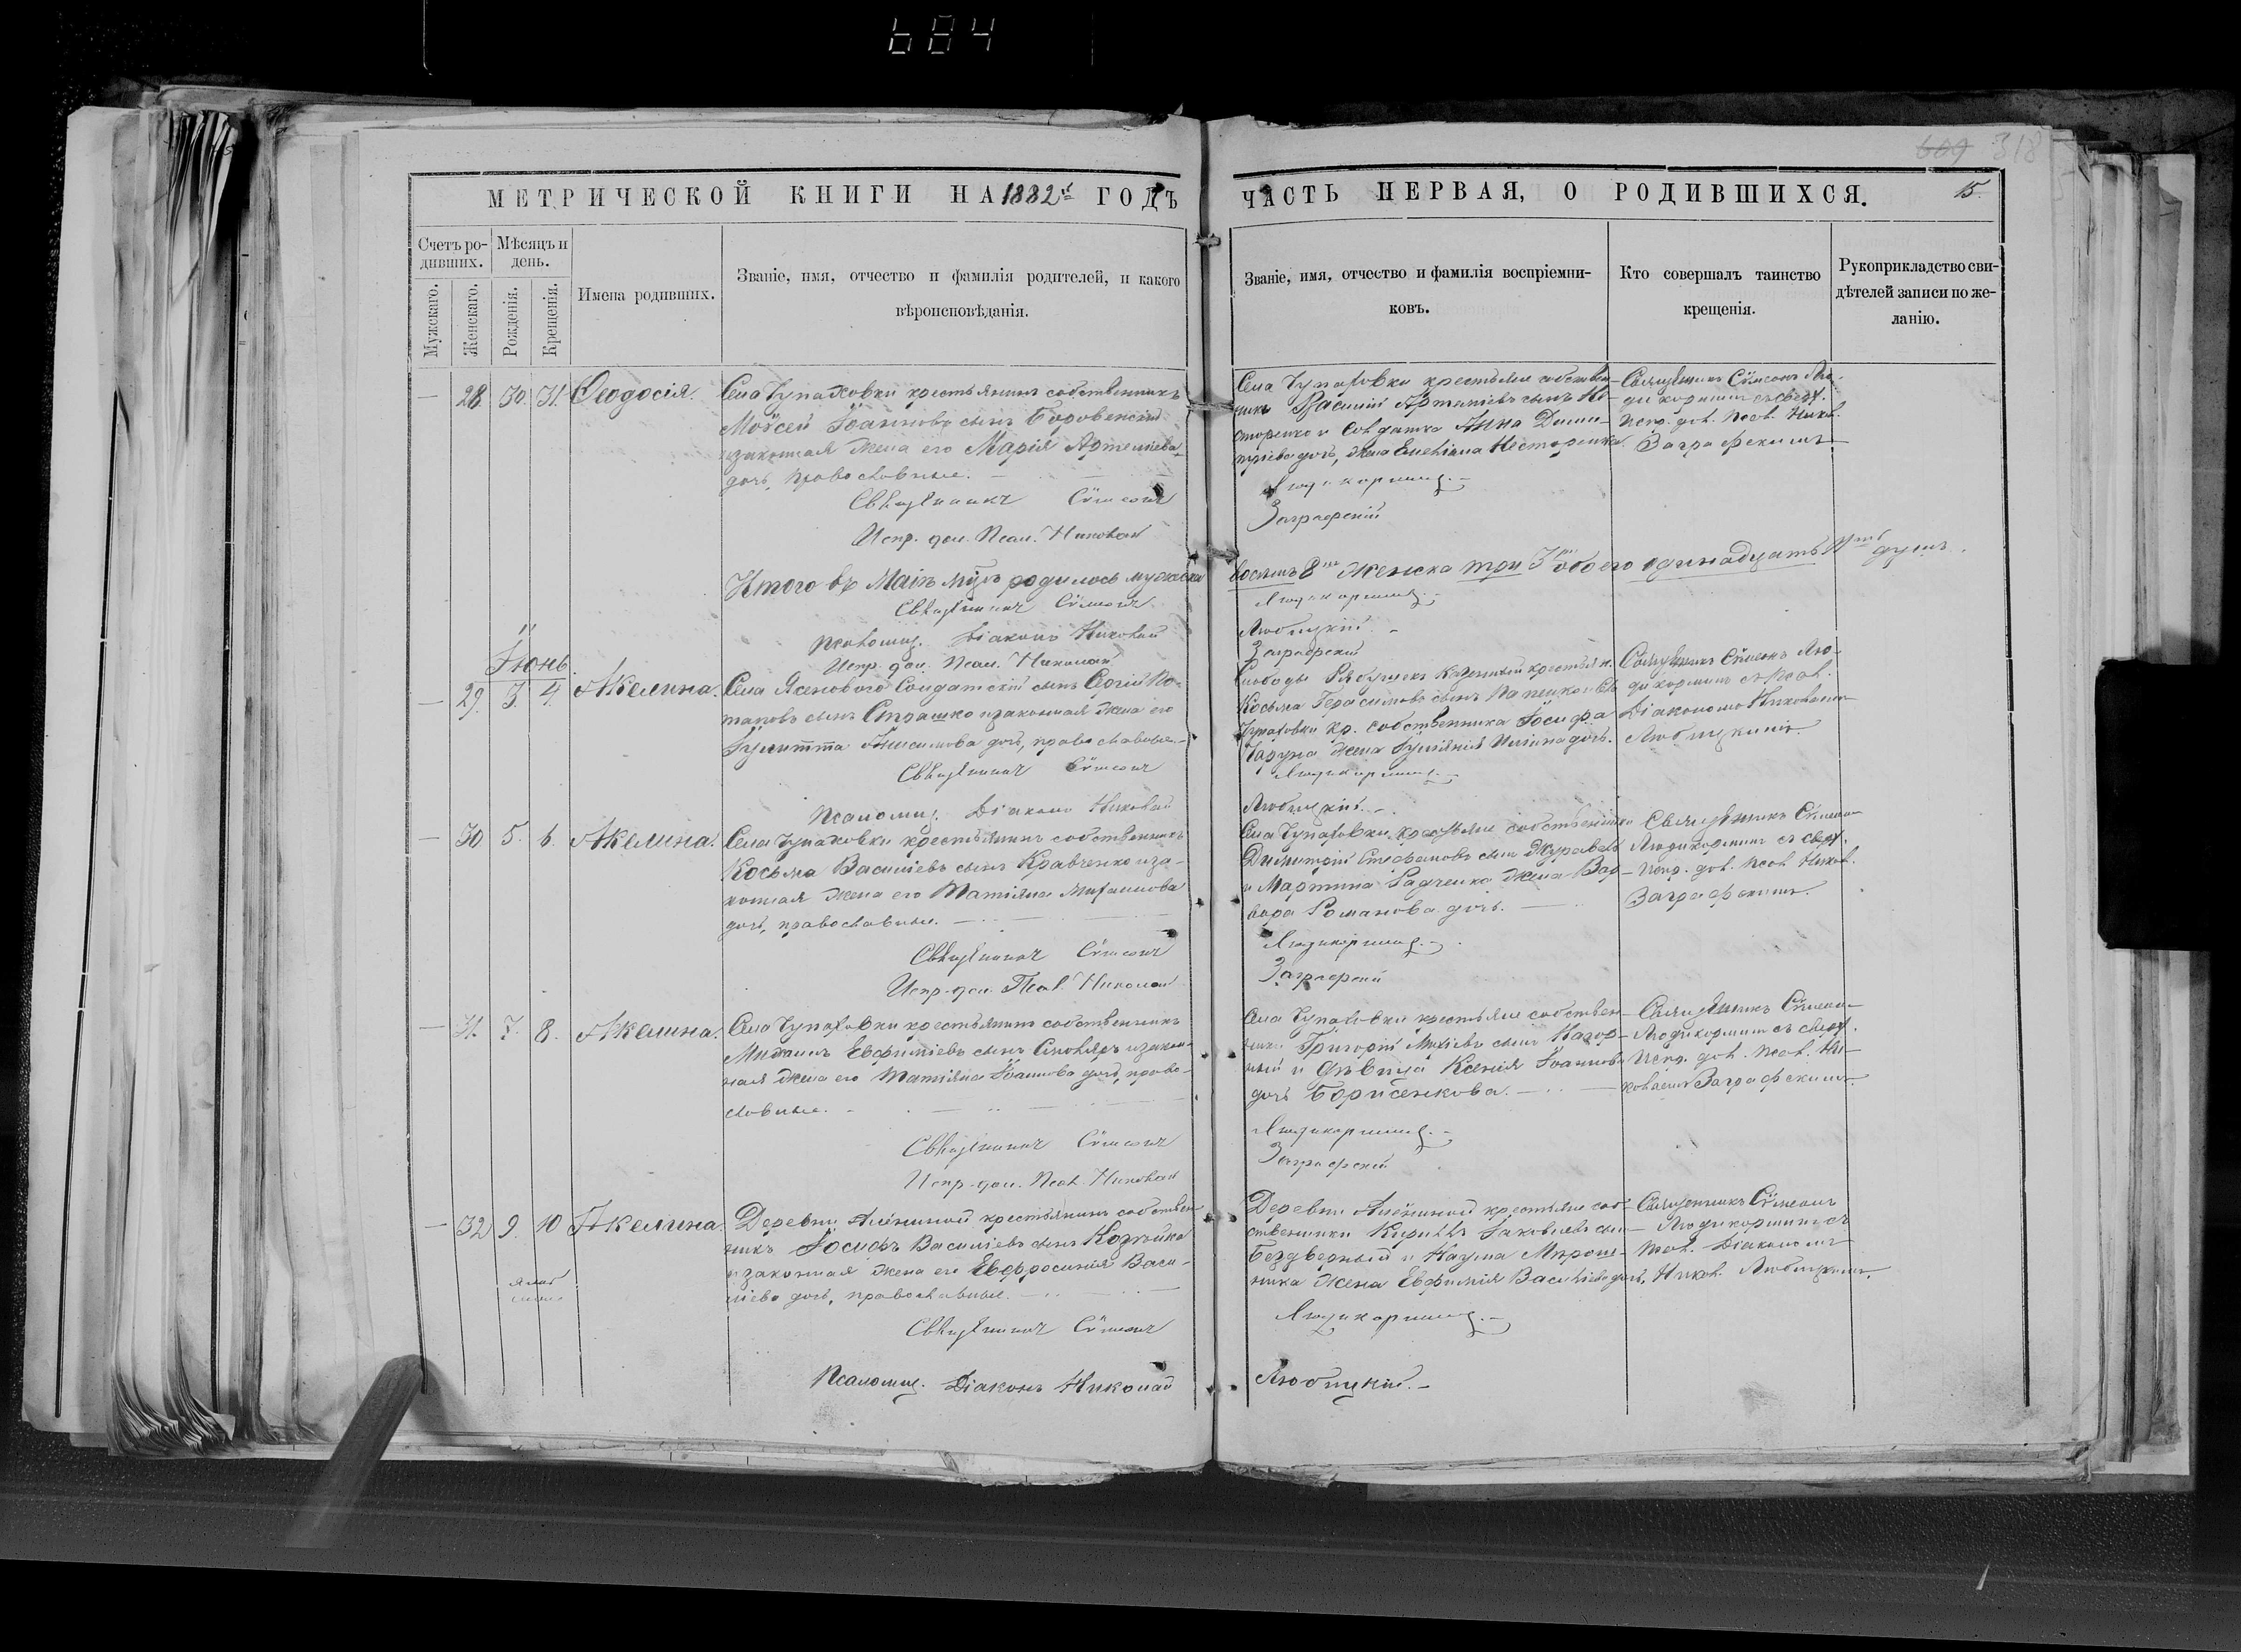 684
609 318
МЕТРИЧЕСКОЙ КНИГИ НА 1882й ГОДЪ
ЧАСТЬ ПЕРВАЯ, О РОДИВШИХСЯ.
15.
Счетъ ро-
дивших.
Мѣсяцъ и
день.
Мужскаго.
Женскаго.
Рожденія.
Крещенія.
Имена родивших.
Званіе, имя, отчество и фамилія родителей, и какого
вѣроисповѣданія.
Званіе, имя, отчество и фамилія воспріемни-
ковъ.
Кто совершалъ таинство
крещенія.
Рукоприкладство сви-
дѣтелей записи по же-
ланію.
— 28. 30. 31. Ѳеодосія.
Села Чупаховки крестьянинъ собственникъ
Моѵсей Іоанновъ сынъ Боровенскій
и законная жена его Марія Артемиева
дочь, православные.
Священникъ Сѵмеонъ
Испр. дол. Псал. Николай
Села Чупаховки крестьяне собствен-
никъ Василій Артеміевъ сынъ Не-
сторенко и Солдатка Анна Дими-
тріева дочь, жена Несторенка
Людикормищ.
Заграфскій
Священникъ Сѵмеонъ Лю-
дикормин съ сверх.
Испр. дол. Псал. Никол.
Заграфскимъ
Итого въ Маіѣ мцѣ родилось мужеска
восемь 8мь женска три 3ри обоего одинадцать 11ть душъ.
Священникъ Сѵмеонъ
Людикормищ.
Псаломщ. Діаконъ Николай
Любицкій
Испр. дол. Псал. Николай
Заграфскій
Іюнь.
— 29. 3. 4. Акелина.
Села Ясеноваго Солдатскій сынъ Сергій По-
таповъ сынъ Страшко и законная жена его
Іулитта Анисимова дочь, православные.
Священникъ Сѵмеонъ
Псаломщ. Діаконъ Николай
Слободы Рябушекъ крестьян.
Косьма Герасимовъ сынъ
Чупаховки кр. собственника Іосифа
жена дочь.
Людикормищ.
Любицкій.
Священникъ Сѵмеонъ Лю-
дикормин съ Псал.
Діакономъ Николаемъ
Любицкимъ.
— 30 5. 6. Акелина.
Села Чупаховки крестьянинъ собственникъ
Косьма Василіевъ сынъ Кравченко и за-
конная жена его Татіяна Михаилова
дочь, православные.
Священникъ Сѵмеонъ
Испр. дол. Псал. Николай
Села Чупаховки, крестьяне собственники
Димитрій Стефановъ сынъ Журавель
и Мартина Радченка жена Вар-
вара Романова дочь.
Людикормищ.
Заграфскій
Священникъ Сѵмеонъ
Людикормин съ сверх.
Испр. дол. Псал. Никол.
Заграфскимъ.
— 31. 7. 8. Акелина.
Села Чупаховки крестьянинъ собственникъ
Михаилъ Евфиміевъ сынъ Столяръ и закон-
ная жена его Татіяна Іоаннова дочь, право-
славные.
Священникъ Сѵмеонъ
Испр. дол. Псал. Николай
Села Чупаховки крестьяне собствен-
ники Григорій сынъ Нагор-
ный и дѣвица Ксенія Іоаннова
дочь Борисенкова.
Людикормищ.
Заграфскій
Священникъ Сѵмеонъ
Людикормин съ сверх.
Испр. дол. Псал. Ни-
колаемъ Заграфскимъ.
— 32 9. 10 Акелина.
Деревни Алёниной крестьянинъ собствен-
никъ Іосифъ Василіевъ сынъ
и законная жена его Евфросинія Васи-
ліева дочь, православные.
Священникъ Сѵмеонъ
Псаломщ. Діаконъ Николай
Деревни Алёниной крестьяне соб-
ственники Кириллъ Іаковлевъ сын
Бездверный и Наума Мироне-
нка жена Евфимія Василіева дочь.
Людикормищ.
Любицкій.
Священникъ Сѵмеонъ
Людикормин съ
Псал. Діакономъ
Никол. Любицкимъ.